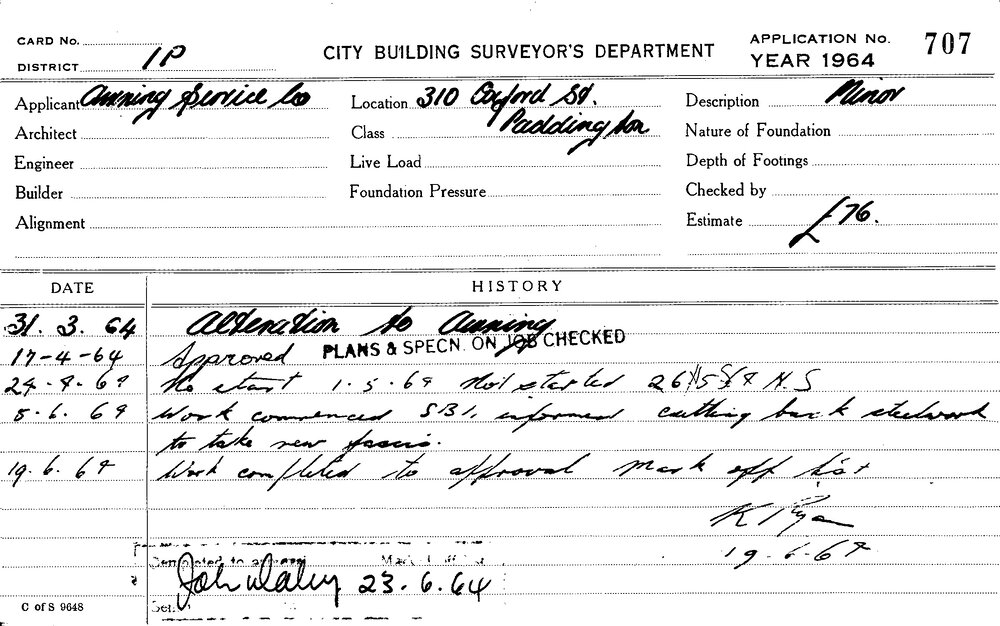 CARD No.
DISTRICT 1P
CITY BUILDING SURVEYOR'S DEPARTMENT
APPLICATION No. 707
YEAR 1964
Applicant Awning Service Co
Location 310 Oxford St.
Paddington
Description Minor
Architect
Class
Nature of Foundation
Engineer
Live Load
Depth of Footings
Builder
Foundation Pressure
Checked by
Alignment
Estimate £76.
DATE HISTORY
31. 3. 64 Alteration to Awning
17-4-64 Approved PLANS & SPECN. ON JOB CHECKED
24-4-64 No start 1.5.64 Not started 26/5/64 N.S
5.6.64 Work commenced S.B.I. informed cutting back steelwork
to take new fascia.
19.6.64 Work completed to approval Mark off list
K Ryan
19-6-64
Completed to approval Mark off list
John Daley 23.6.64
C of S 9648